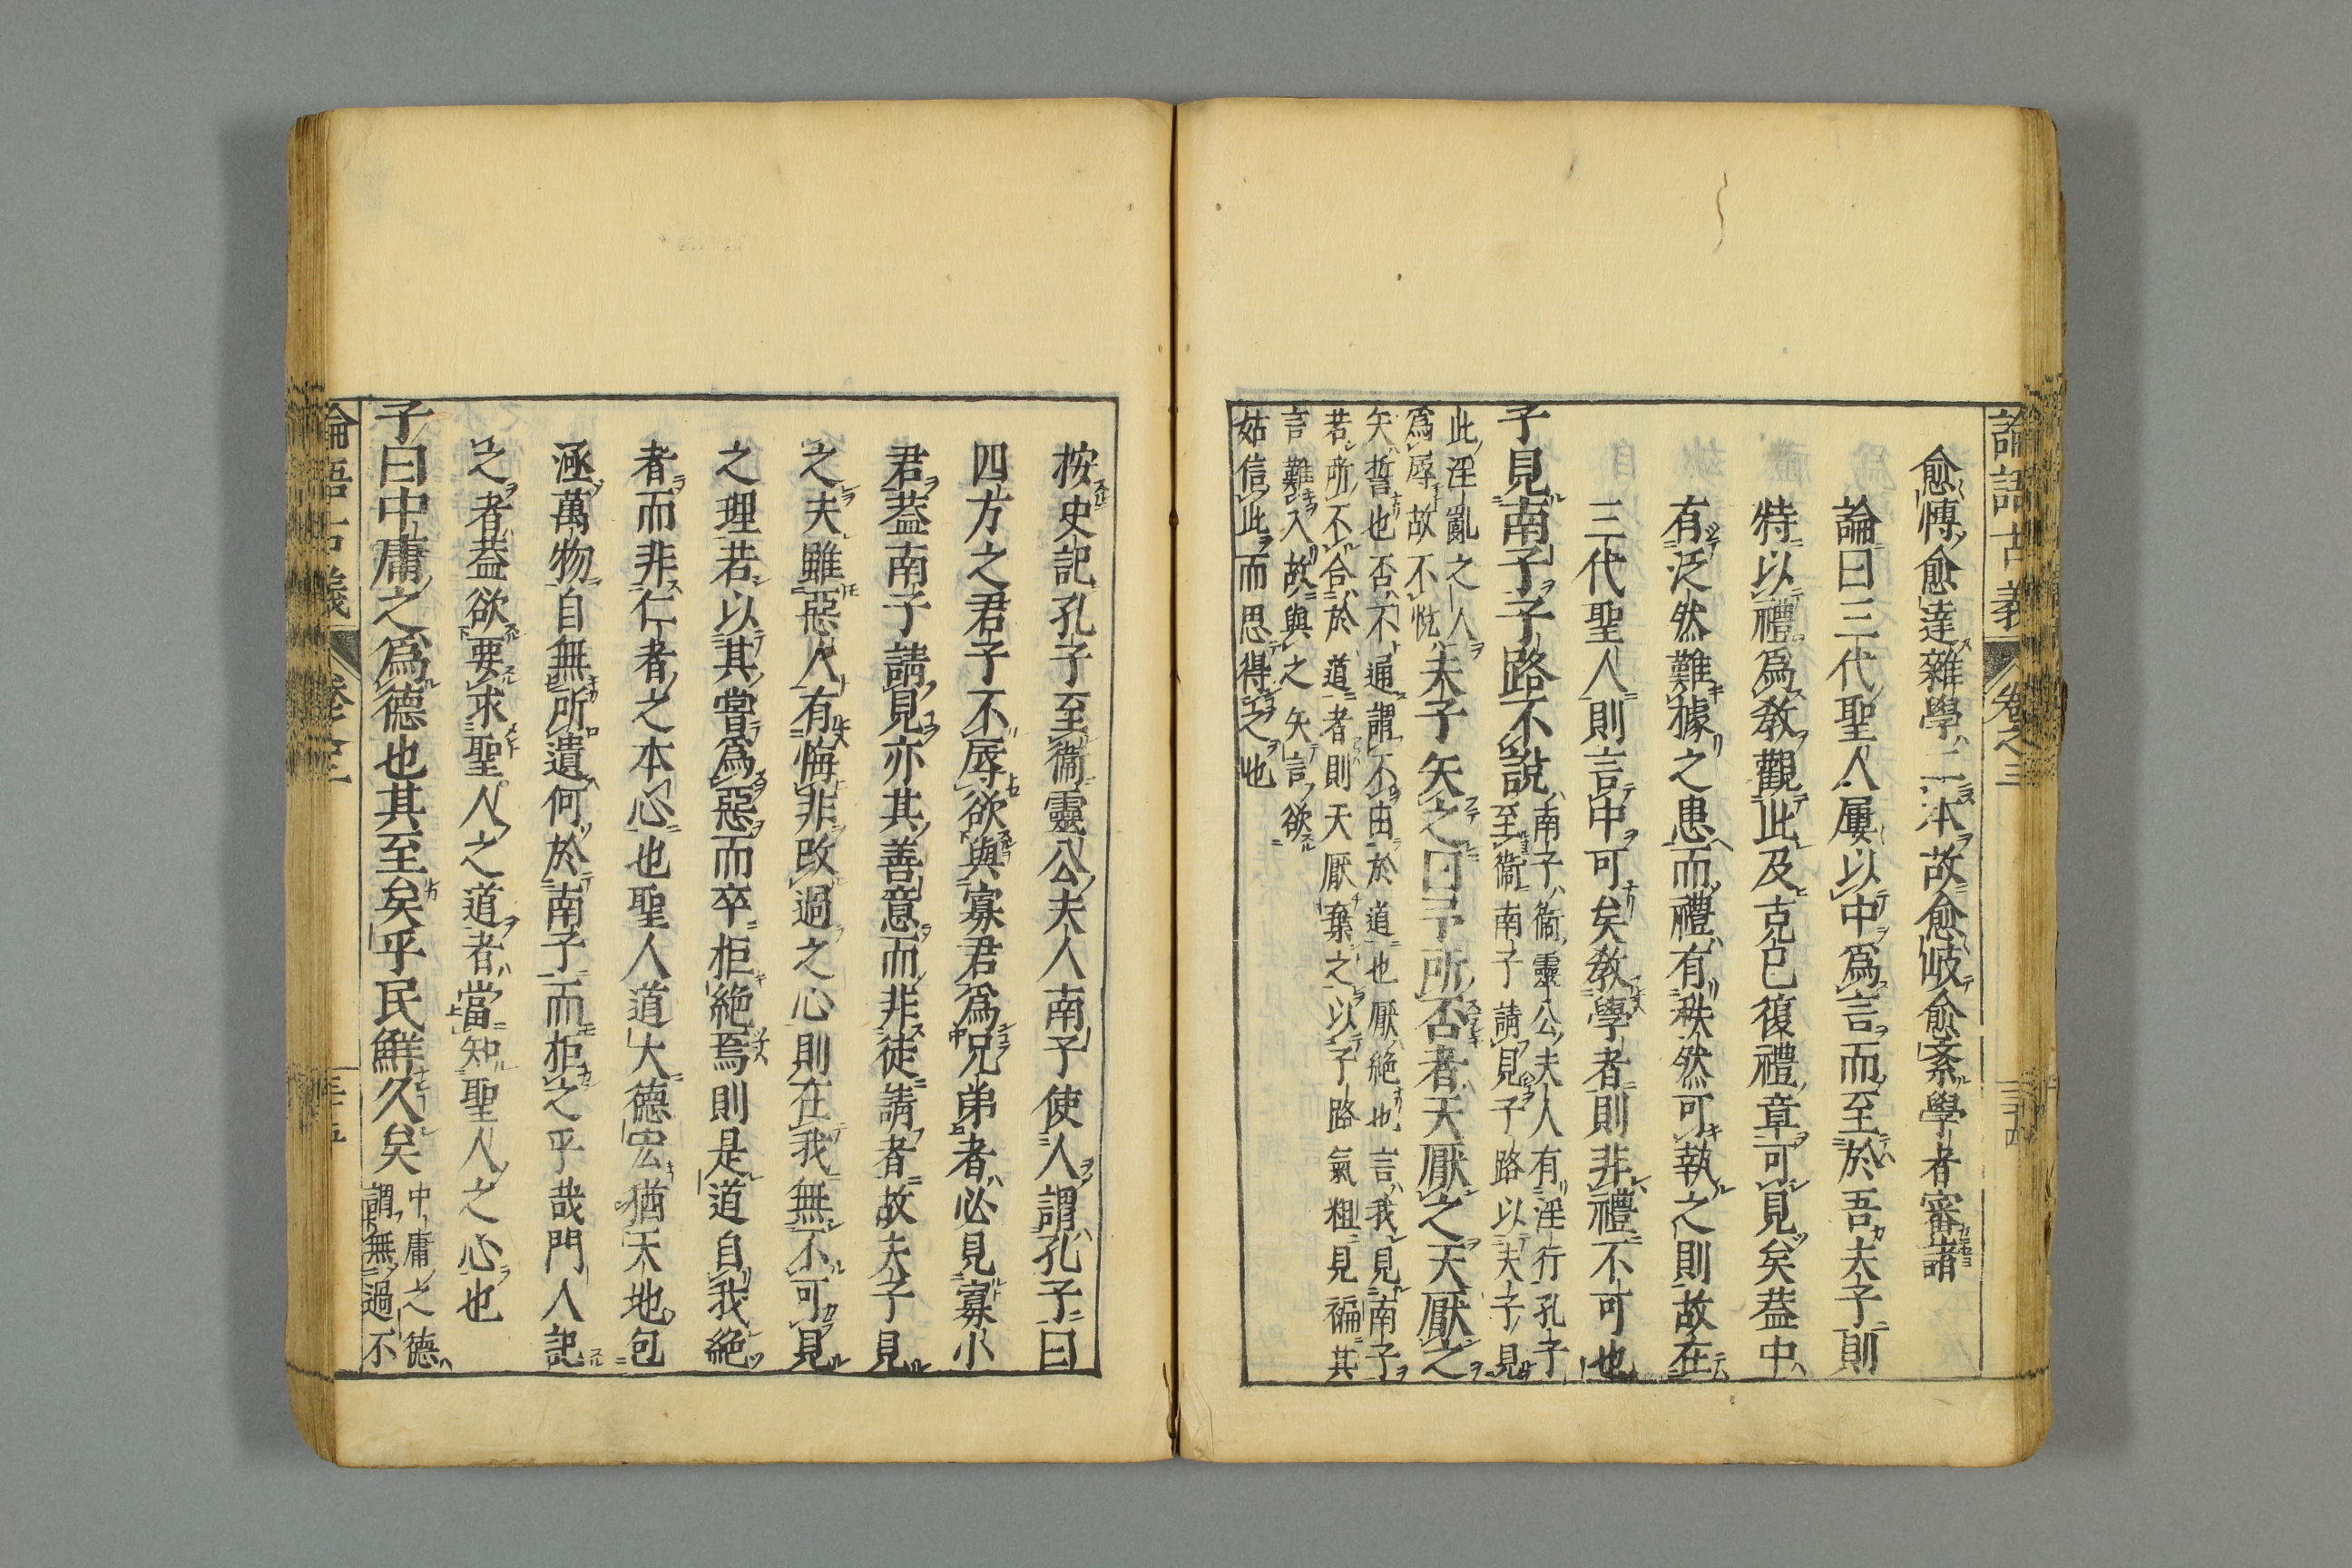 論語古義 卷之三 三十四
愈愽愈達雜學二本故愈岐愈紊學者審諸
論曰三代聖人屢以中爲言而至於吾夫子則
特以禮爲教觀此及克己復禮章可見矣葢中
有泛然難據之患而禮有秩然可執之則故在
三代聖人則言中可矣教學者則非禮不可也
子見南子子路不說南子衞靈公夫人有淫行孔子
至衞南子請見子路以夫子見
此淫亂之人
爲辱故不悦夫子矢之曰予所否者天厭之天厭之
矢誓也否不通謂不由於道也厭絶也言我見南子
若所不合於道者則天厭棄之以子路氣粗見褊其
言難入故與之矢言欲
姑信此而思得之也
按史記孔子至衞靈公夫人南子使人謂孔子曰
四方之君子不辱欲與寡君爲兄弟者必見寡小
君葢南子請見亦其善意而非徒請者故夫子見
之夫雖惡人有悔非改過之心則在我無不可見
之理若以其嘗爲惡而卒拒絶焉則是道自我絶
者而非仁者之本心也聖人道大德宏猶天地包
涵萬物自無所遺何於南子而拒之乎哉門人記
之者葢欲要求聖人之道者當知聖人之心也
子曰中庸之爲德也其至矣乎民鮮久矣中庸之德
謂無過不
論語古義 卷之三 三十五